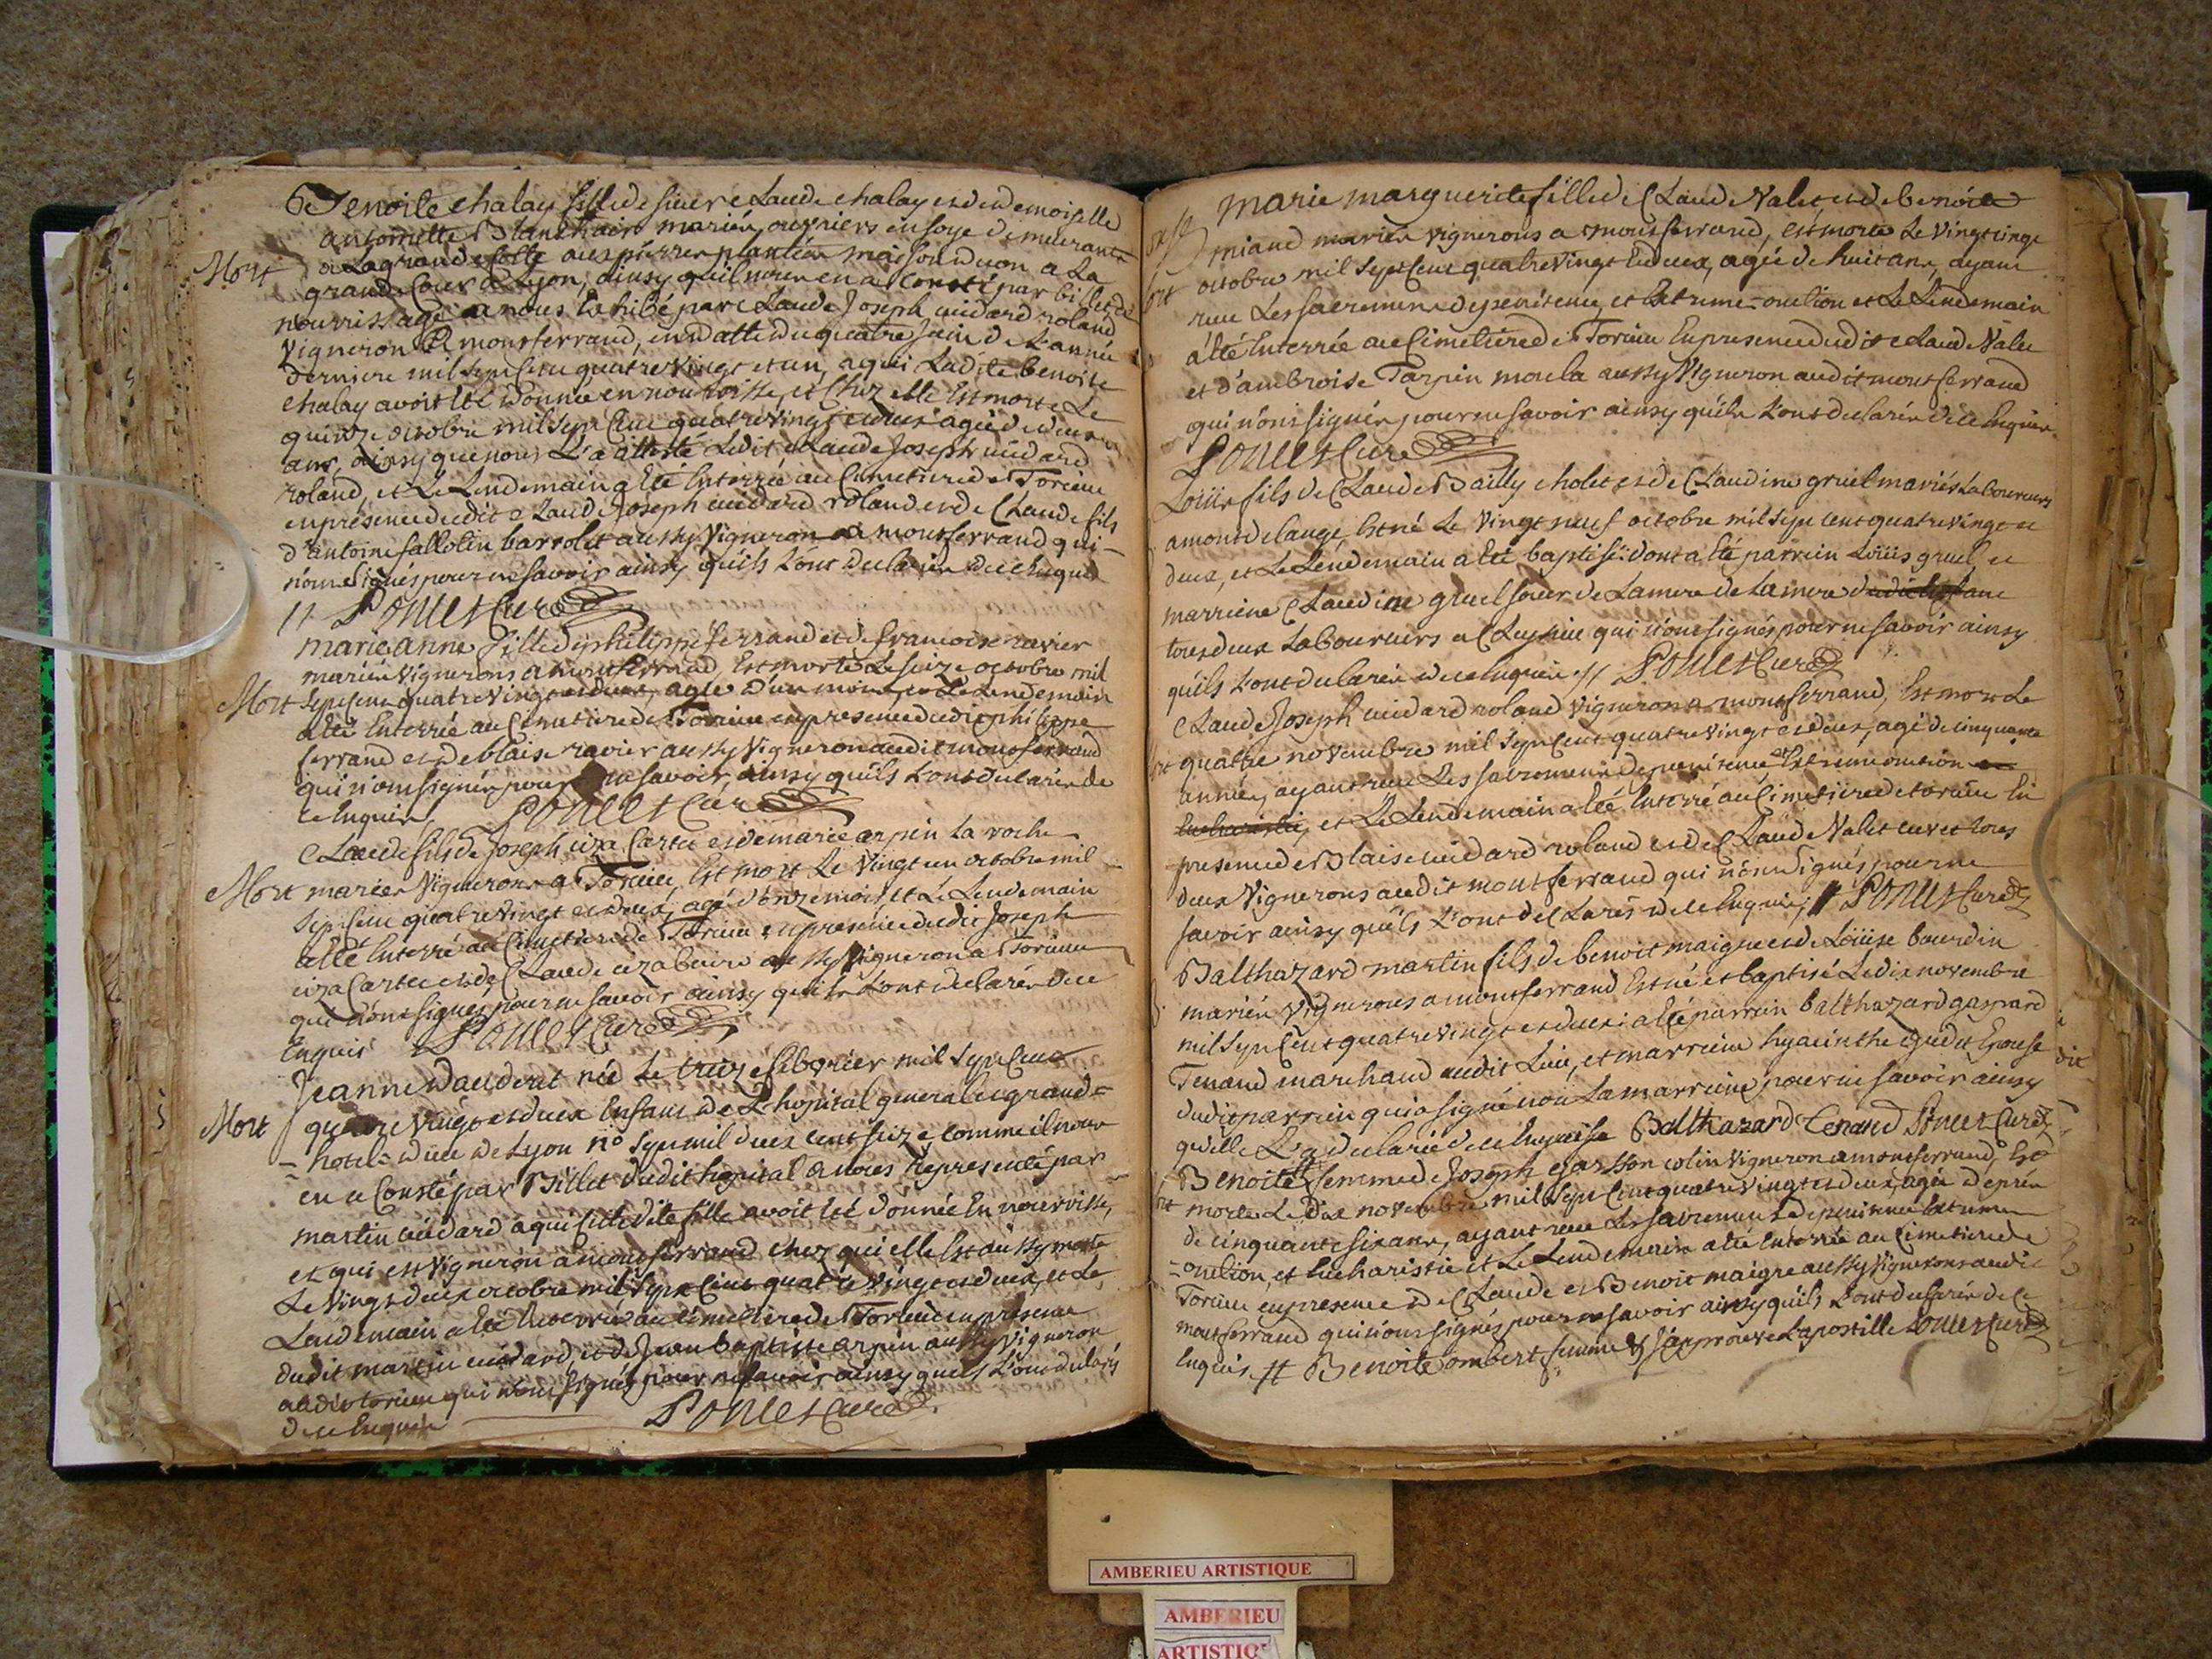 Benoite chalay fille de sieur Claude chalay et de demoiselle
antoinette Blanchain mariés, ouvriers en soye demeurants
Mort a la grande Cotte aux pierres plantées maison duon a la
grande Cour a Lyon, ainsy quil nous en a Consté par billet de
nourrissage a nous Exhibé par Claude Joseph cuidard roland
Vigneron a montferrand, en datte du quatre Juin de L'année
derniere mil sept Cent quatre Vingt et un, a qui Ladite benoite
chalay avoit Eté donnée en nourrisse, et Chez elle Est morte Le
quinze octobre mil sept Cent quatre vingt et deux agée de deux
ans, ainsy que nous L'a attesté Ledit Claude Joseph cuidard
roland, et Le Lendemain a Eté Enterrée au Cimetiere de Torcieu
en présence dudit Claude Joseph cuidard roland et de Claude fils
d'antoine fallolin barrolet aussy Vigneron a montferrand qui
n'ont signés pour ne savoir ainsy quils L'ont declarés de ce Enquis
// Poncet Curé
marie anne fille de philippe ferrand et de francoise ravier
mariés Vignerons a montferrand, Est morte Le seize octobre mil
Mort sept Cent quatre Vingt et deux, agée d'un mois et Le Lendemain
a Eté Enterrée au Cimetiere de Torcieu en presence dudit philippe
ferrand et de blaise ravier aussy Vigneron audit montferrand
qui n'ont signés pour ne savoir ainsy quils L'ont declarés de
ce Enquis Poncet Curé
Claude fils de Joseph ciza Cartu et de marie arpin La roche
Mort mariés Vignerons a Torcieu, Est mort Le Vingt un octobre mil
sept Cent quatre Vingt et deux, agé d'onze mois, et Le Lendemain
a Eté Enterré au Cimetiere de Torcieu en presence dudit Joseph
ciza Cartu et de Claude ciza aussy Vigneron a Torcieu
qui n'ont signés pour ne savoir ainsy quils L'ont declarés de ce
Enquis Poncet Curé
Jeanne daudrut née Le treize febvrier mil sept Cent
Mort quatre Vingt et deux Enfant de L'hopital general et grand=
=hotel=dieu de Lyon n° sept mil deux cent seize, comme il nous
en a Consté par Billet dudit hopital a nous representé par
martin cuidard a qui Cette dite fille avoit Eté donnée En nourrisse,
et qui est Vigneron a montferrand chez qui elle Est aussy morte
Le vingt deux octobre mil sept Cent quatre Vingt et deux, et Le
Lendemain a Eté Enterrée au Cimetiere de Torcieu en presence
dudit martin cuidard, et de Jean baptiste arpin aussy Vigneron
audit torcieu qui n'ont signés pour ne savoir ainsy quils L'ont declarés
de ce Enquis Poncet Curé
marie marguerite fille de Claude Nalet, et de benoite
miand mariés Vignerons a montferrand, est morte Le Vingt cinq
octobre mil sept Cent quatre Vingt et deux, agée de huit ans, ayant
recu Les sacrements de penitence, et Extreme-onction et Le Lendemain
a Eté Enterrée au Cimetiere de Torcieu En presence dudit Claude Nalet
et d'ambroise Tarpin moula aussy Vigneron audit montferrand
qui n'ont signés pour ne savoir ainsy quils L'ont declarés de ce Enquis
Poncet Curé
Loüis fils de Claude Bailly cholet et de Claudine gruel mariés Laboureurs
a mont de lange, Est né Le Vingt neuf octobre mil sept cent quatre vingt et
deux, et Le Lendemain a Eté baptisé dont a Eté parrein Loüis gruel, et
marreine Claudine gruel soeur de La mere de La mere dudit Enfant
tous deux Laboureurs a Cleyzieu qui n'ont signés pour ne savoir ainsy
quils L'ont declarés de ce Enquis // Poncet Curé
Claude Joseph cuidard roland Vigneron a montferrand, Est mort Le
quatre novembre mil sept Cent quatre Vingt et deux, agé de cinquante
années, ayant recu Les sacrements de penitence et Extreme onction et
Eucharistie, et Le Lendemain a Eté Enterré au Cimetiere de torcieu En
presence de Blaise cuidard roland et de Claude Nalet tous
deux Vignerons audit montferrand qui n'ont signés pour ne
savoir ainsy quils L'ont declarés de ce Enquis, // Poncet Curé
Balthazard martin fils de benoit maigre et de Loüise bourdin
mariés Vignerons a montferrand Est né et baptisé Le dix novembre
mil sept Cent quatre vingt et deux; a Eté parrein balthazard gaspard
Tenand marchand audit Lieu, et marreine hyacinthe Epouse
dudit parrein qui a signé non La marreine pour ne savoir ainsy
qu'elle L'a declaré de ce Enquise Balthazard Tenand Poncet Curé
Benoite # femme de Joseph garsson colin Vigneron a montferrand, Est
morte Le dix novembre mil sept Cent quatre vingt et deux, agée de près
de cinquante six ans, ayant recu Les sacrements de penitence Extreme
=onction, et Eucharistie et Le Lendemain a Eté Enterrée au Cimetiere de
Torcieu en presence de Claude et Benoit maigre aussy Vignerons audit
montferrand qui n'ont signés pour ne savoir ainsy quils L'ont declarés de Ce
Enquis # Benoite ombert femme & J'approuve L'apostille Poncet Curé
AMBERIEU ARTISTIQUE
AMBERIEU
ARTISTIQ